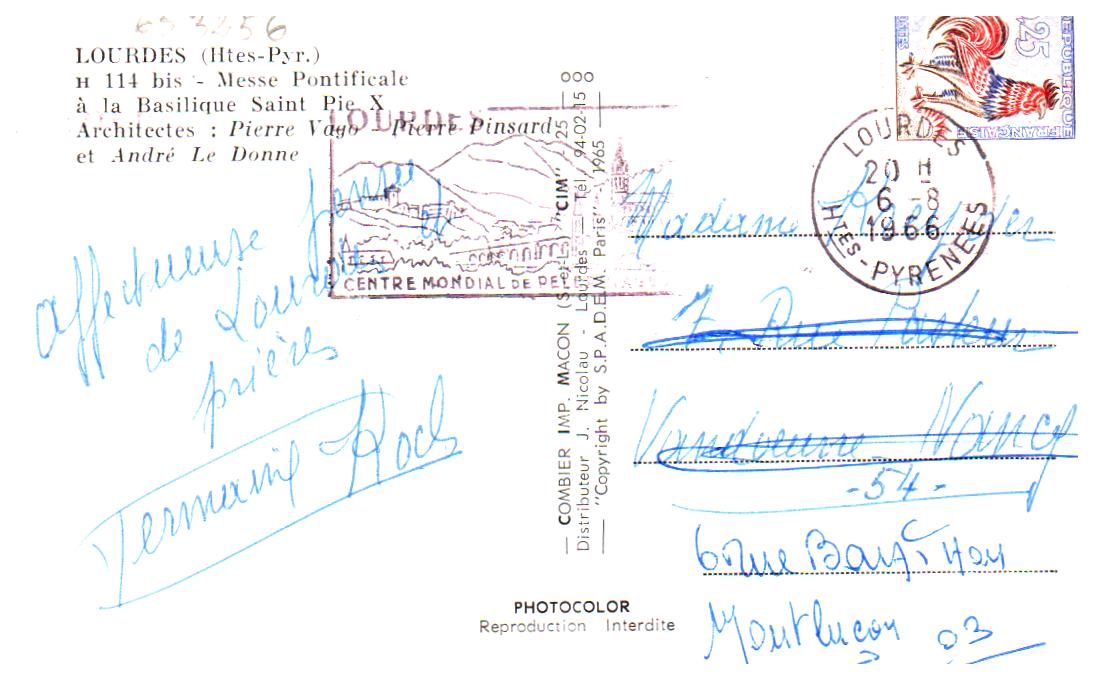 653256
LOURDES (Htes-Pyr.)
H 114 bis - Messe Pontificale
à la Basilique Saint Pie X
Architectes : Pierre Vago - Pierre Pinsard
et André Le Donne
affectueuse pensée
de Lourdes
prières
Germaine Koch
LOURDES
CENTRE MONDIAL DE PELERINAGES
— COMBIER IMP. MACON (S.-et-L.) "CIM"
Distributeur J. Nicolau - Lourdes - Tél. 94-02-15 25
— "Copyright by S.P.A.D.E.M. Paris" 1965 —
PHOTOCOLOR
Reproduction Interdite
REPUBLIQUE
FRANÇAISE
0,25
LOURDES
20 H
6 -8
1966
HTES-PYRENEES
Madame
7, Rue Pasteur
Vandoeuvre Nancy
-54-
6 rue
Montluçon 03